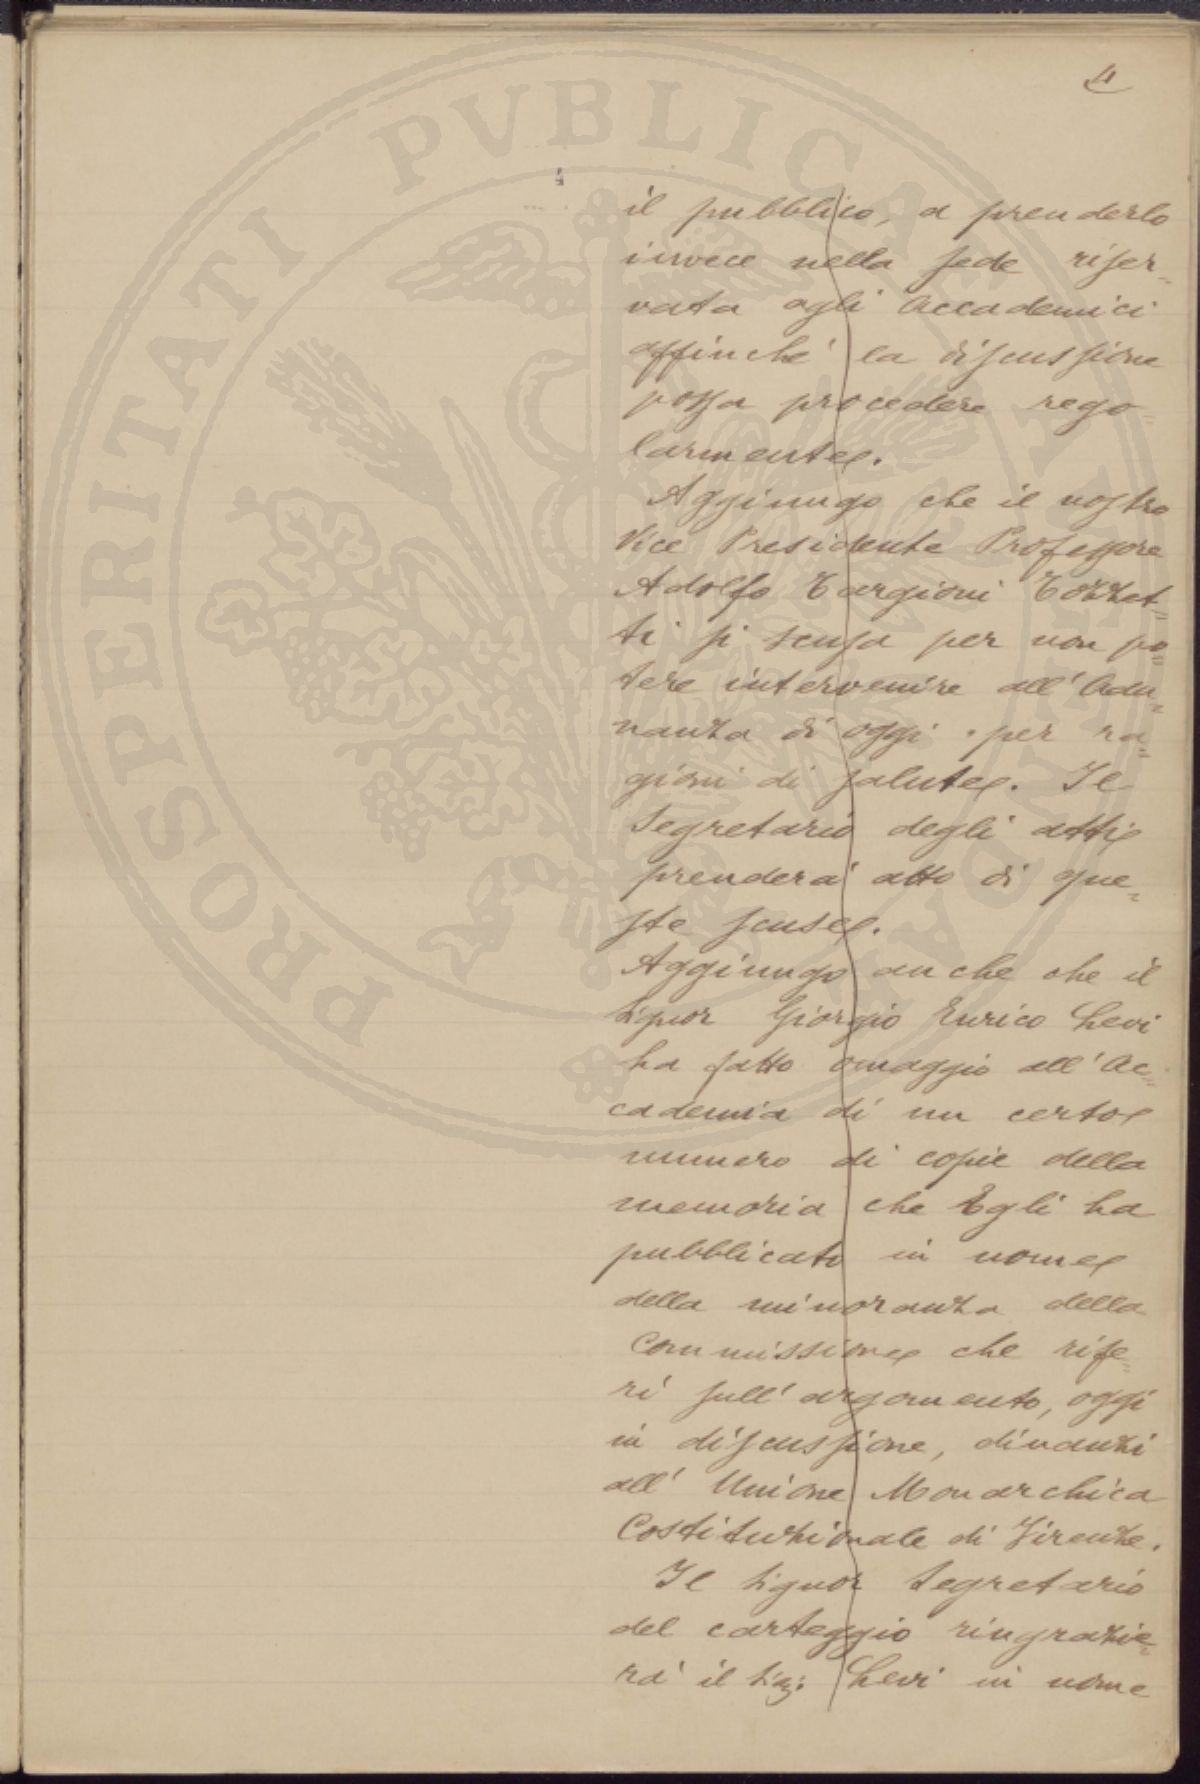 4
PROSPERITATI PVBLICAE AVGENDAE
il pubblico, a prenderlo
invece nella sede riser=
vata agli Accademici
affinché la discussione
possa procedere rego=
larmente.
Aggiungo che il nostro
Vice Presidente Professore
Adolfo Targioni Tozzet=
ti si scusa per non po=
tere intervenire all'Adu=
nanza di oggi per ra=
gioni di salute. Il
Segretario degli atti
prenderà atto di que=
ste scuse.
Aggiungo anche che il
Signor Giorgio Enrico Levi
ha fatto omaggio all'Ac=
cademia di un certo
numero di copie della
memoria che Egli ha
pubblicato in nome
della minoranza della
Commissione che rife=
rì sull'argomento, oggi
in discussione, dinanzi
all'Unione Monarchica
Costituzionale di Firenze.
Il Signor Segretario
del carteggio ringrazie=
rà il Sig: Levi in nome